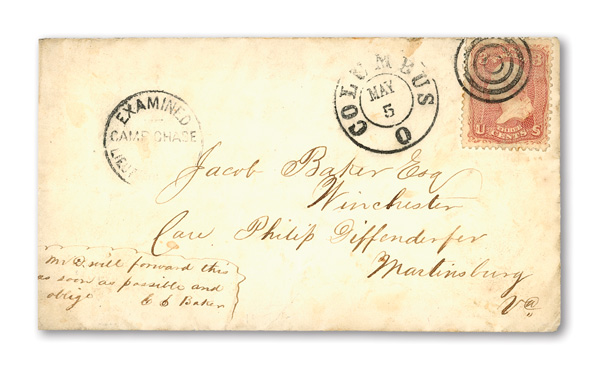 EXAMINED
CAMP CHASE
COLUMBUS O
MAY
5
3
U CENTS S
Jacob Baker Esq
Winchester
Care Philip Diffenderfer
Martinsburg
Va
Mr D will forward this
as soon as possible and
oblige E E Baker